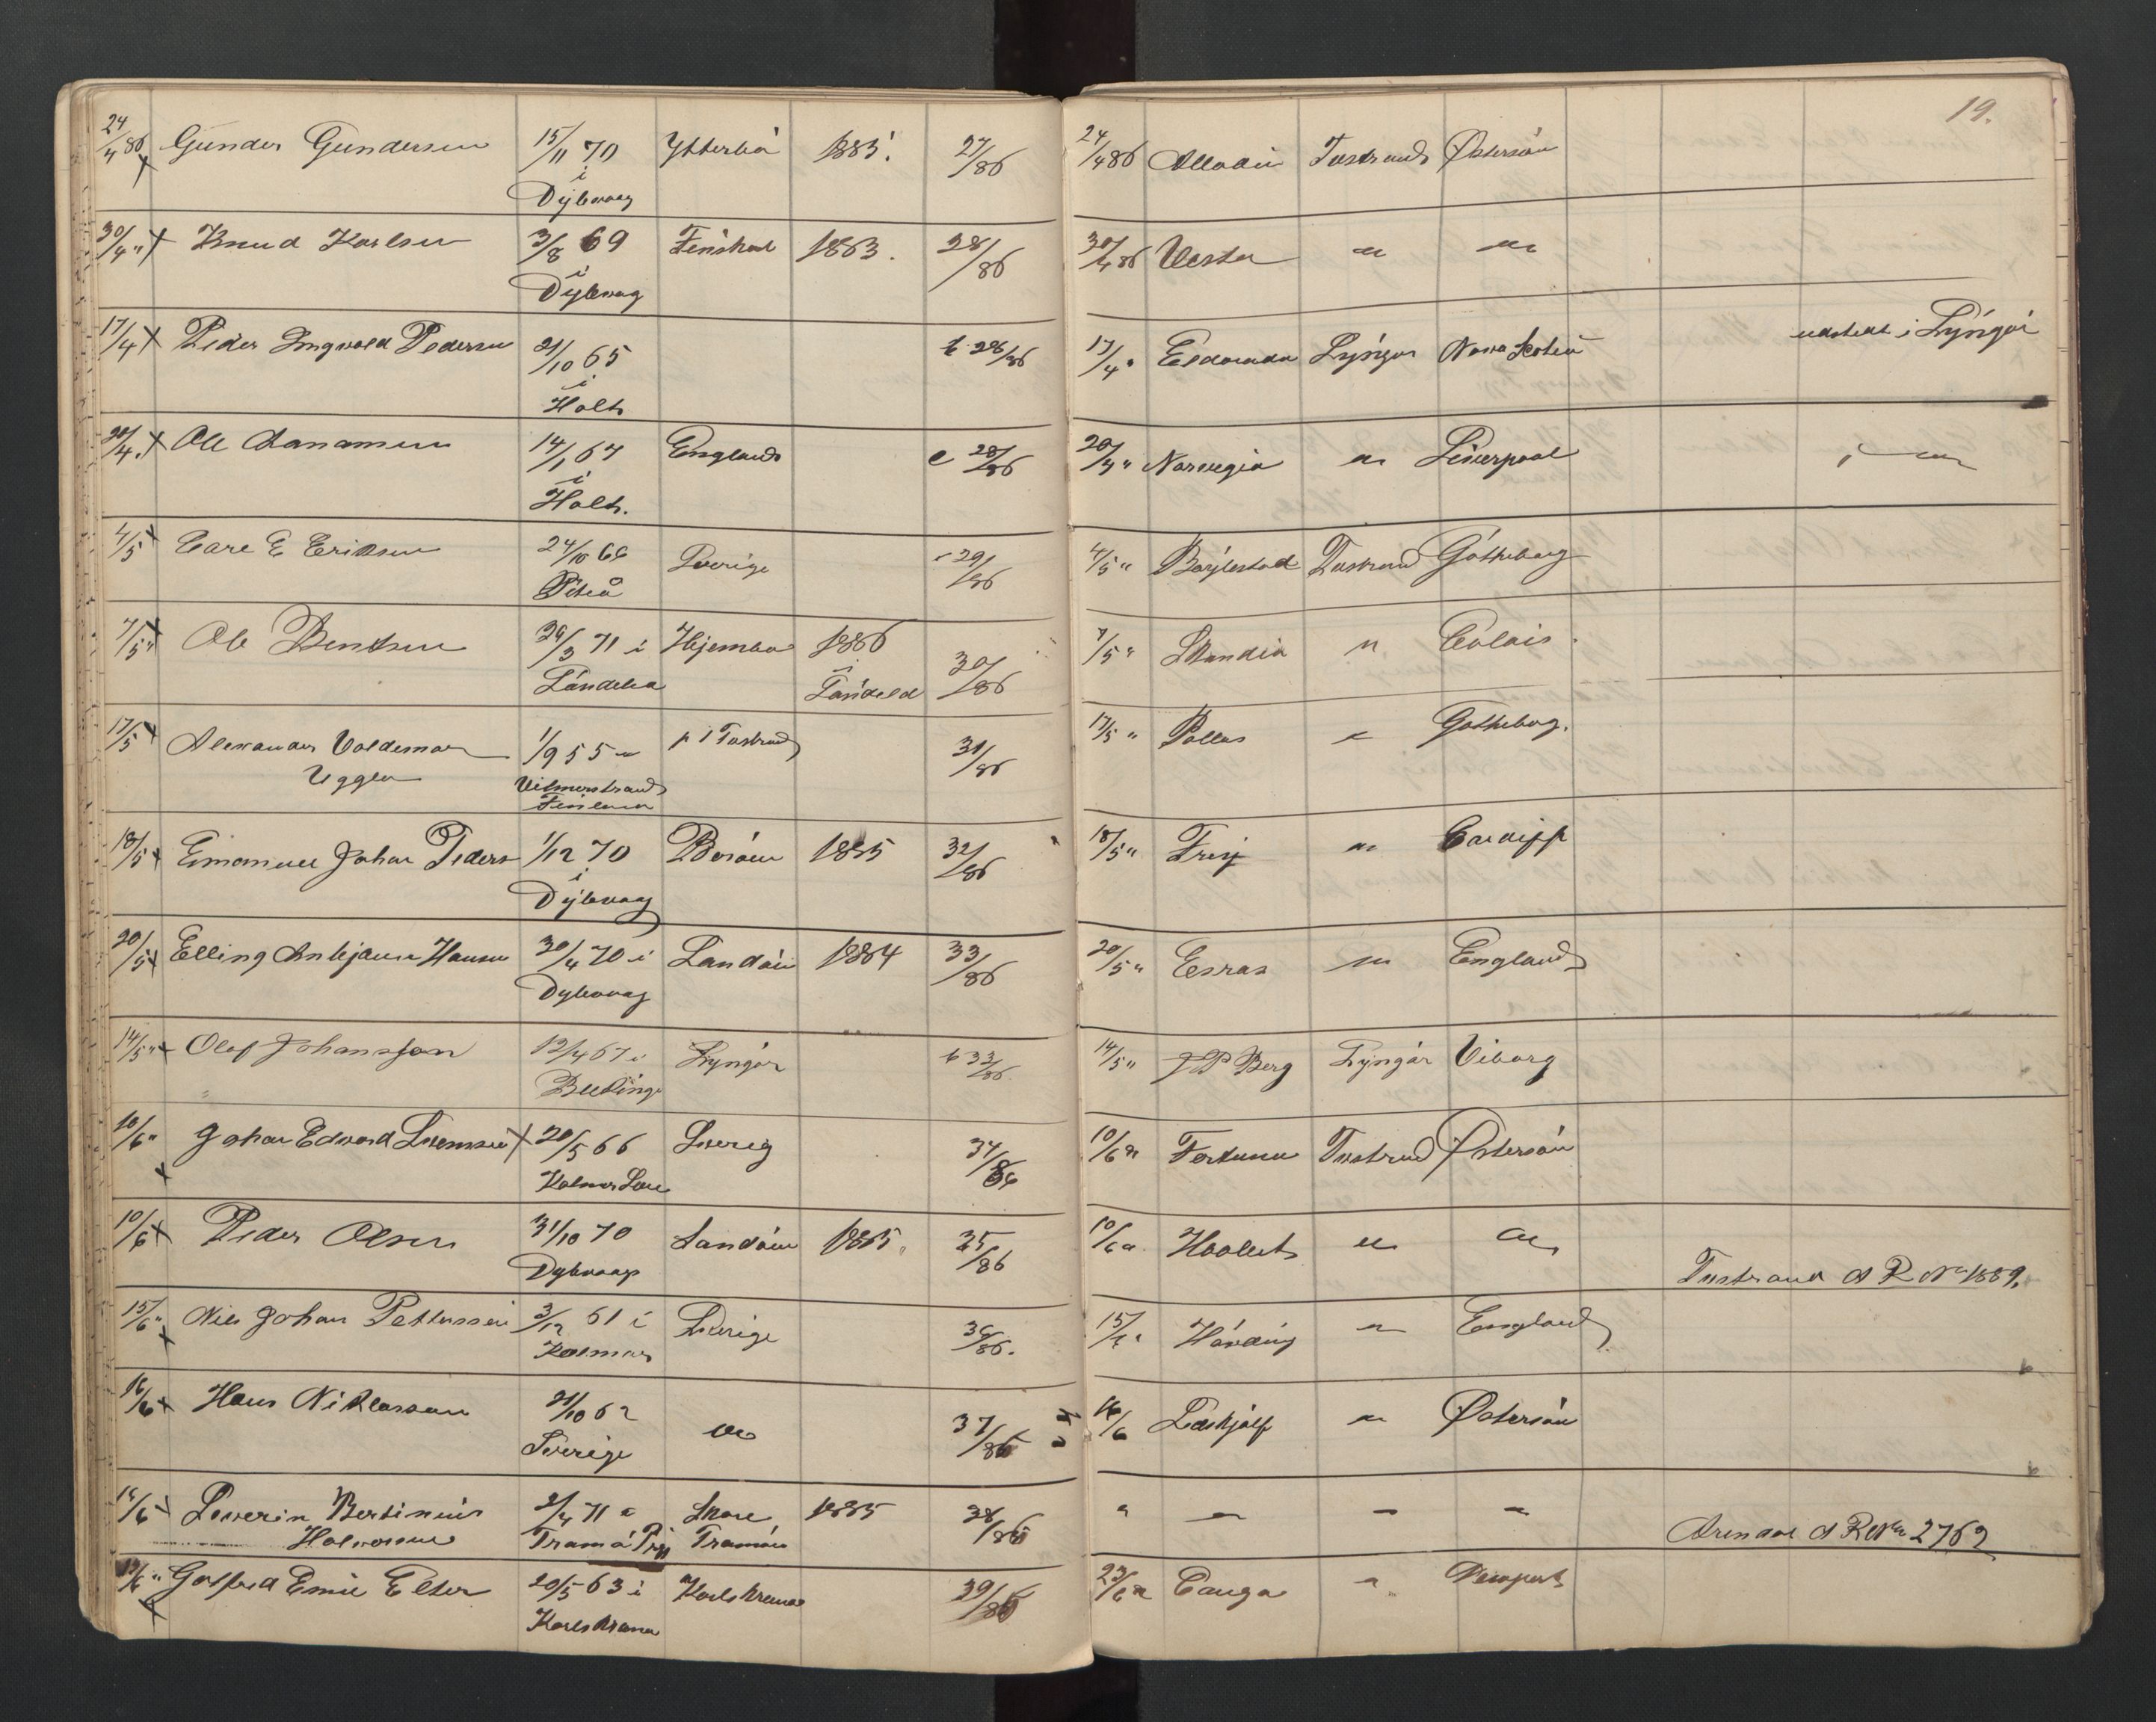 19.
24/4 86 Gunder Gundersen 15/11 70 Ytterbö 1885. 27/86 24/4 86 Alladin Tvedestrand Østersøen
i
Dybvaag
30/4 " Knud Karlsen 3/8 69 1883. 28/86 30/4 86 Vesta " "
i
Dybvaag
17/4 Peder Ingvald Pedersen 21/10 65 b 28/86 17/4 " Eldorado Lyngør Nova Scotia udstedt i Lyngør
i
Holt
20/4 Ole 14/1 67 England c 28/86 20/4 " Norvegia " Liverpool " "
i
Holt.
4/5 Carl E Eriksen 24/10 66 Sverige 29/86 4/5 " Tvedestrand Gøtheborg
Piteå
7/5 " Ole Bentsen 71 i Hjemme 1886 30/86 7/5 " Skandia " Calais.
Søndeled i Søndeled
17/5 Alexander Valdemar 1/9 55 Tvestrand 31/86 17/5 " Pallas " Gøtheborg.
Uggla
Finland
18/5 Emanuel Johan Peders 1/12 70 Borøen 1885 32/86 18/5 " Freij " Cardiff
i
Dybvaag
20/5 Elling Anbjørn Hansen 30/4 70 i Sandøen 1884 33/86 20/5 " Esras " England
Dybvaag
14/5 " Olof Johansson 13/4 67 i Lyngør b 33/86 14/5 " J P Berg Lyngør Viborg
10/6 " Johan Edvard Svensson 20/5 66 Sverig 34/86 10/6 " Fortuna Tvestrand Østersøen
Kalmar Län
10/6 Peder Olsen 31/10 70 Sandøen 1885. 35/86 10/6 " " "
Dybvaag Tvestrand A R No 1889.
15/6 " Nils Johan Pettersson 3/12 61 i Sverige 36/86. 15/6 " " England
Kalmar
16/6 Hans Niklasson 21/10 62 " 37/86 16/6 Lidskjalf " Østersøen
Sverige
16/6 Severin Bertinius 2/4 71 1885 38/86 " " " "
Halvorsen Tromø Tromøen Arendal A R No 2762
Gotfred Emil Elter 20/5 63 i Karlskrona 39/86 23/6 " Newport
Karlskrona